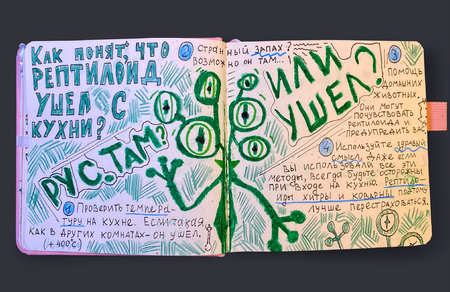 Как понять, что
рептилоид
ушел с
кухни?
Рус. там?
1 Проверить темпера-
туру на кухне. Если такая,
как в других комнатах – он ушел.
(+400°C)
2 Странный запах?
Возможно он там...
или
ушел?
3 Помощь
домашних
животных.
Они могут
почувствовать
рептилоида и
предупредить вас
4 Используйте здравый
смысл. Даже если
вы использовали все эти
методы, всегда будьте осторожны
при входе на кухню. Рептило-
иды хитры и коварны, поэтому
лучше перестраховаться.